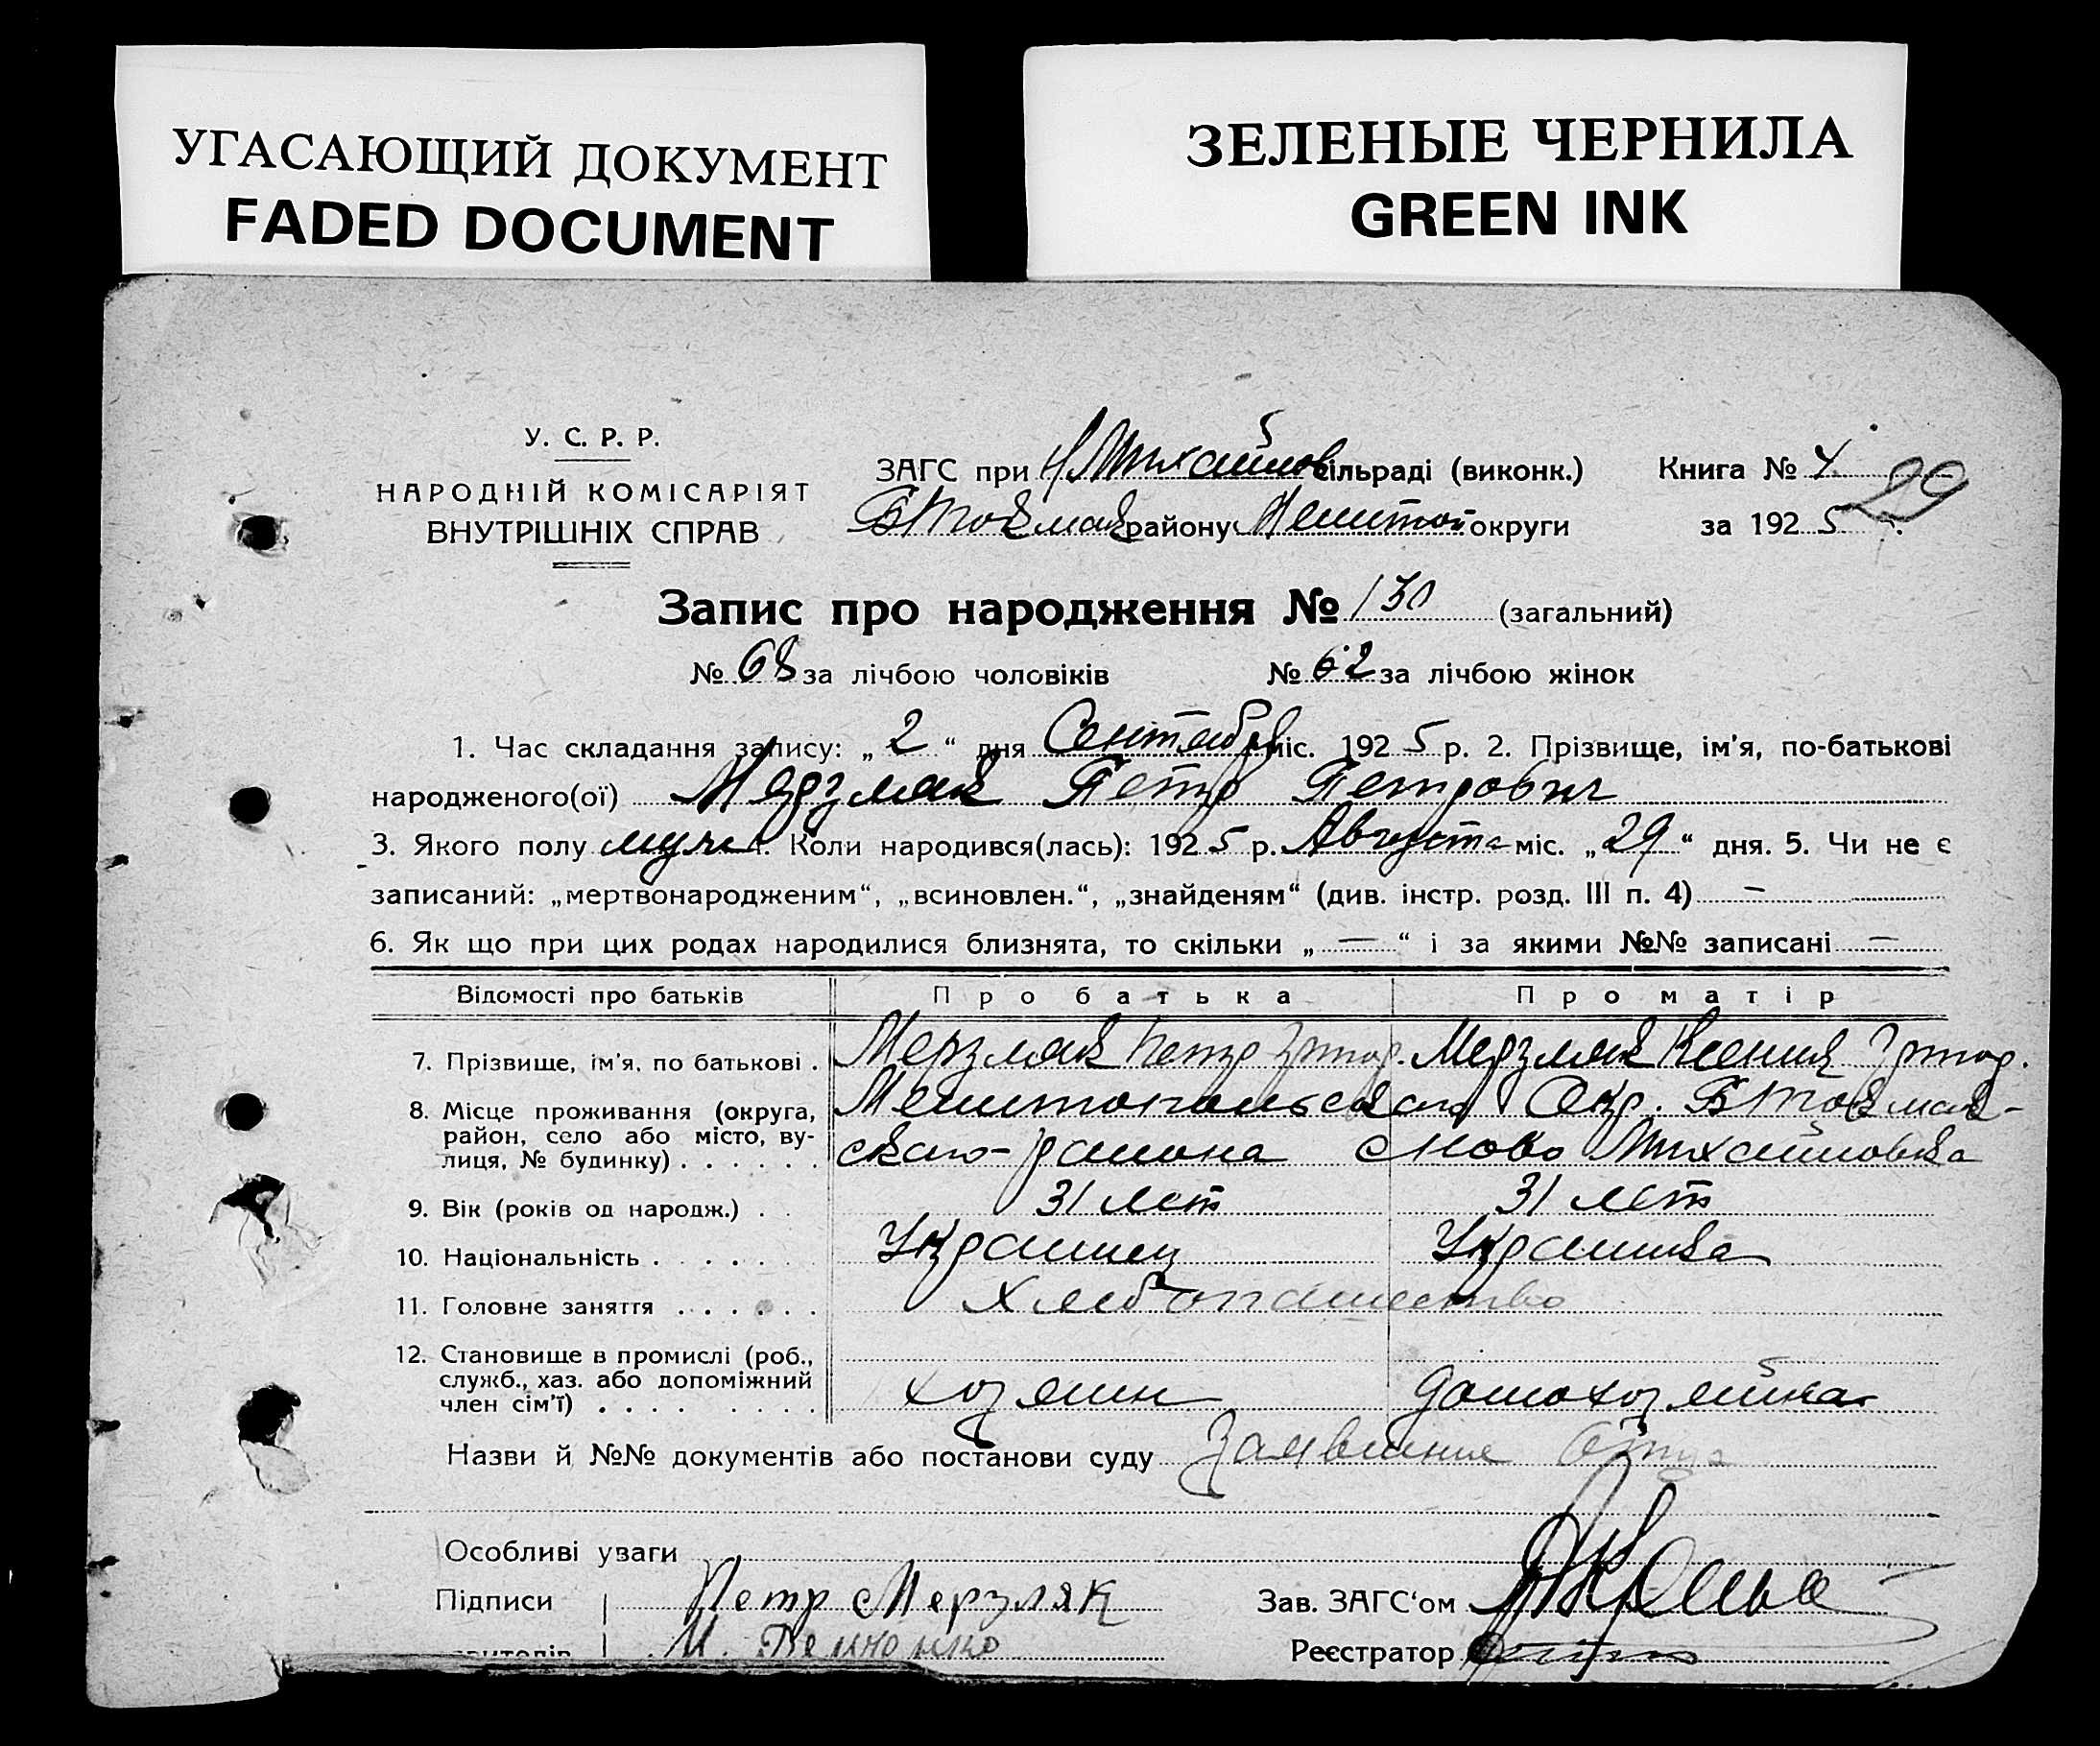 УГАСАЮЩИЙ ДОКУМЕНТ
FADED DOCUMENT
ЗЕЛЕНЫЕ ЧЕРНИЛА
GREEN INK
У. С. Р. Р.
НАРОДНІЙ КОМІСАРІЯТ
ВНУТРІШНІХ СПРАВ
ЗАГС при Н Михайлов сільраді (виконк.) Книга № 4 29
БТокмак району Мелитоп округи за 1925 р.
Запис про народження № 130 (загальний)
№ 68 за лічбою чоловіків № 62 за лічбою жінок
1. Час складання запису: „2“ дня Сентября міс. 1925 р. 2. Прізвище, ім'я, по-батькові
народженого(ої) Мерзляк Петр Петрович
3. Якого полу муж. 4. Коли народився(лась): 1925 р. Августа міс. „29“ дня. 5. Чи не є
записаний: „мертвонародженим“, „всиновлен.“, „знайденям“ (див. інстр. розд. III п. 4) —
6. Як що при цих родах народилися близнята, то скільки „—“ і за якими №№ записані —
Відомості про батьків Про батька Про матір
7. Прізвище, ім'я, по батькові . Мерзляк Петр Григор. Мерзляк Ксения Григор.
8. Місце проживання (округа, район, село або місто, вулиця, № будинку) . . . . . . Мелитопольского Окр. БТокмак-
ского района с Ново Михайловка
9. Вік (років од народж.) . . 31 лет 31 лет
10. Національність . . . . . . . Украинец Украинка
11. Головне заняття . . . . . . Хлебопашество
12. Становище в промислі (роб., служб., хаз. або допоміжний член сім'ї) . . . . . . . . . хозяин домохозяйка
Назви й №№ документів або постанови суду Заявление Отца
Особливі уваги
Підписи Петр Мерзляк Зав. ЗАГС‘ом
И. Демченко Реєстратор